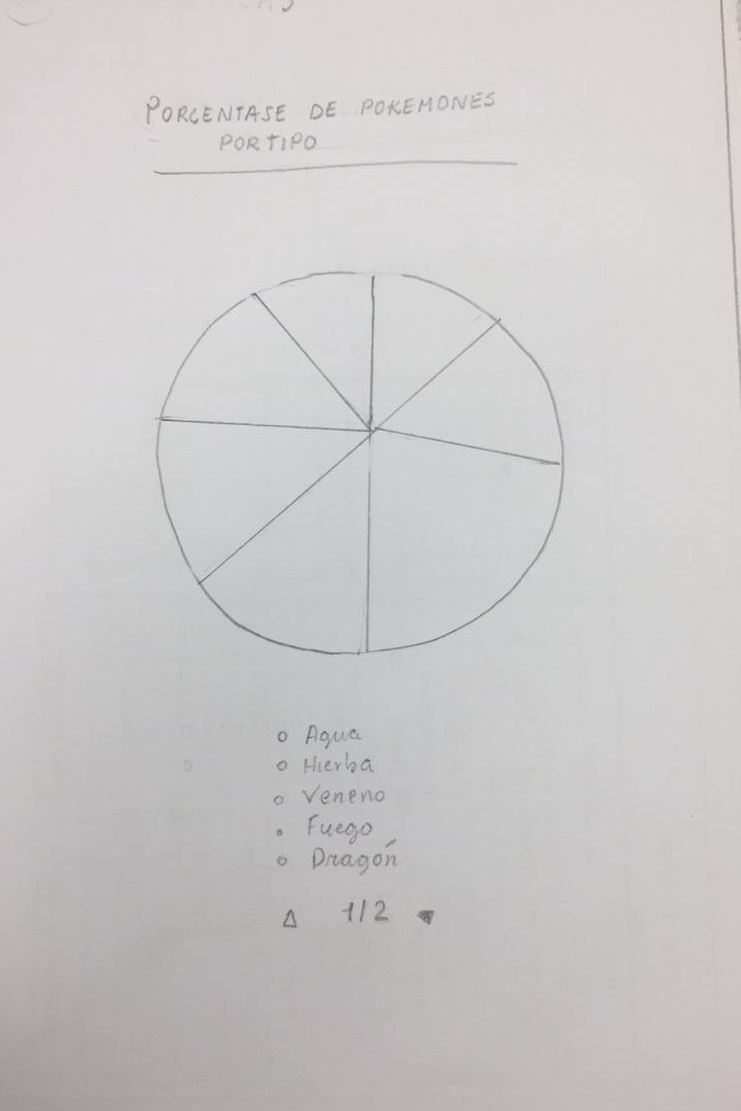 PORCENTASE DE POKEMONES
POR TIPO
Agua
Hierba
Veneno
Fuego
Dragón
1/2